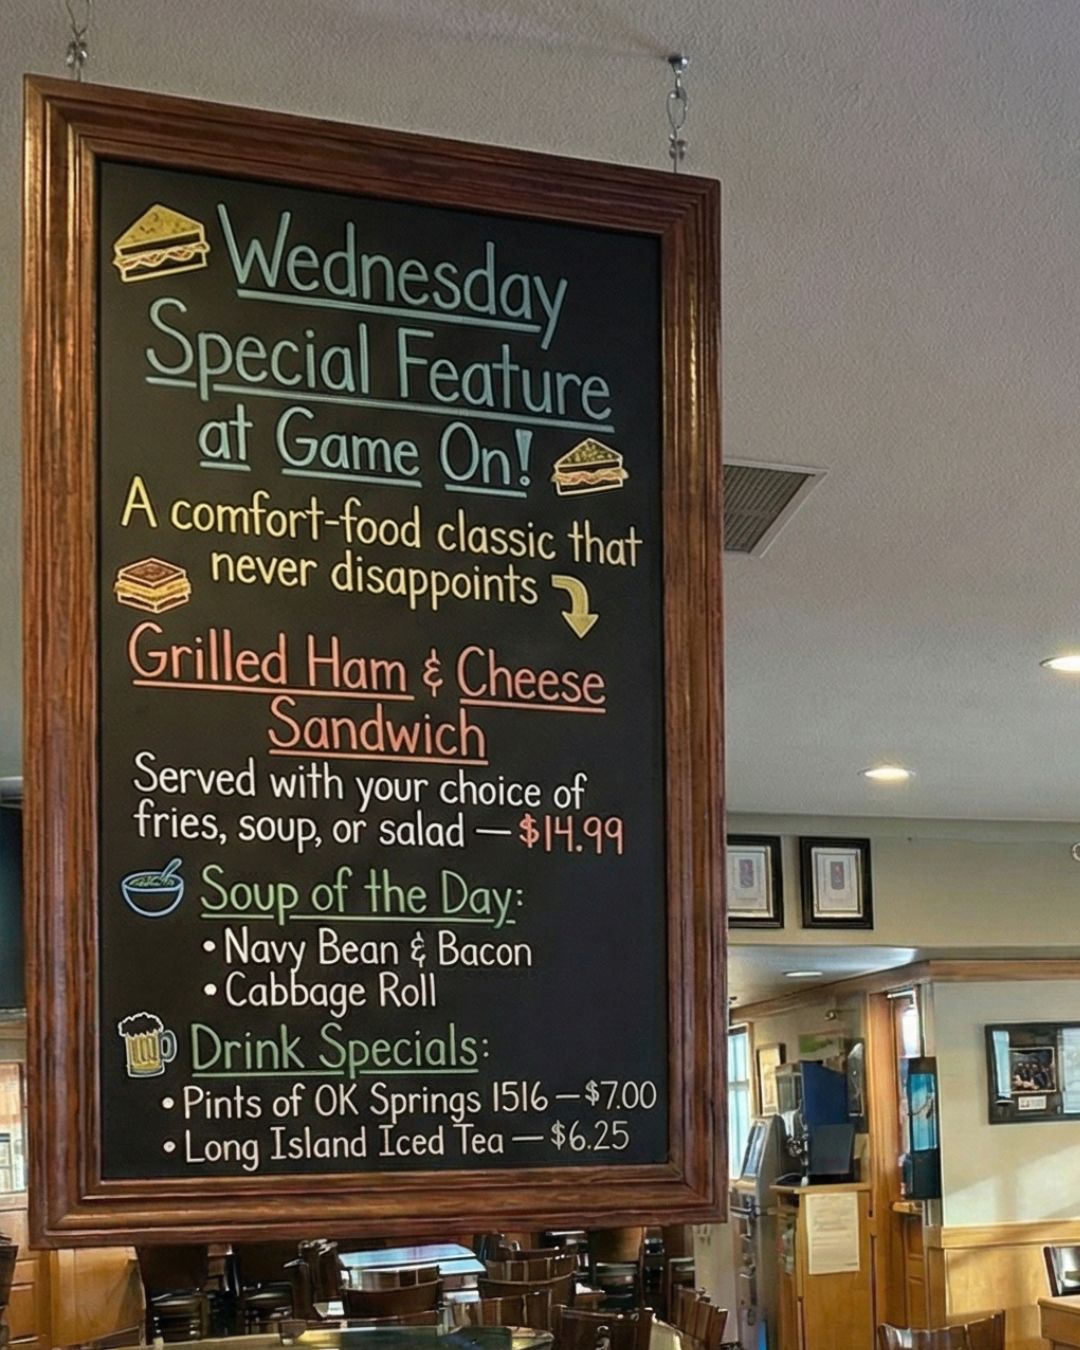 Wednesday
Special Feature
at Game On!
A comfort-food classic that
never disappoints
Grilled Ham & Cheese
Sandwich
Served with your choice of
fries, soup, or salad — $14.99
Soup of the Day:
• Navy Bean & Bacon
• Cabbage Roll
Drink Specials:
• Pints of OK Springs 1516 — $7.00
• Long Island Iced Tea — $6.25